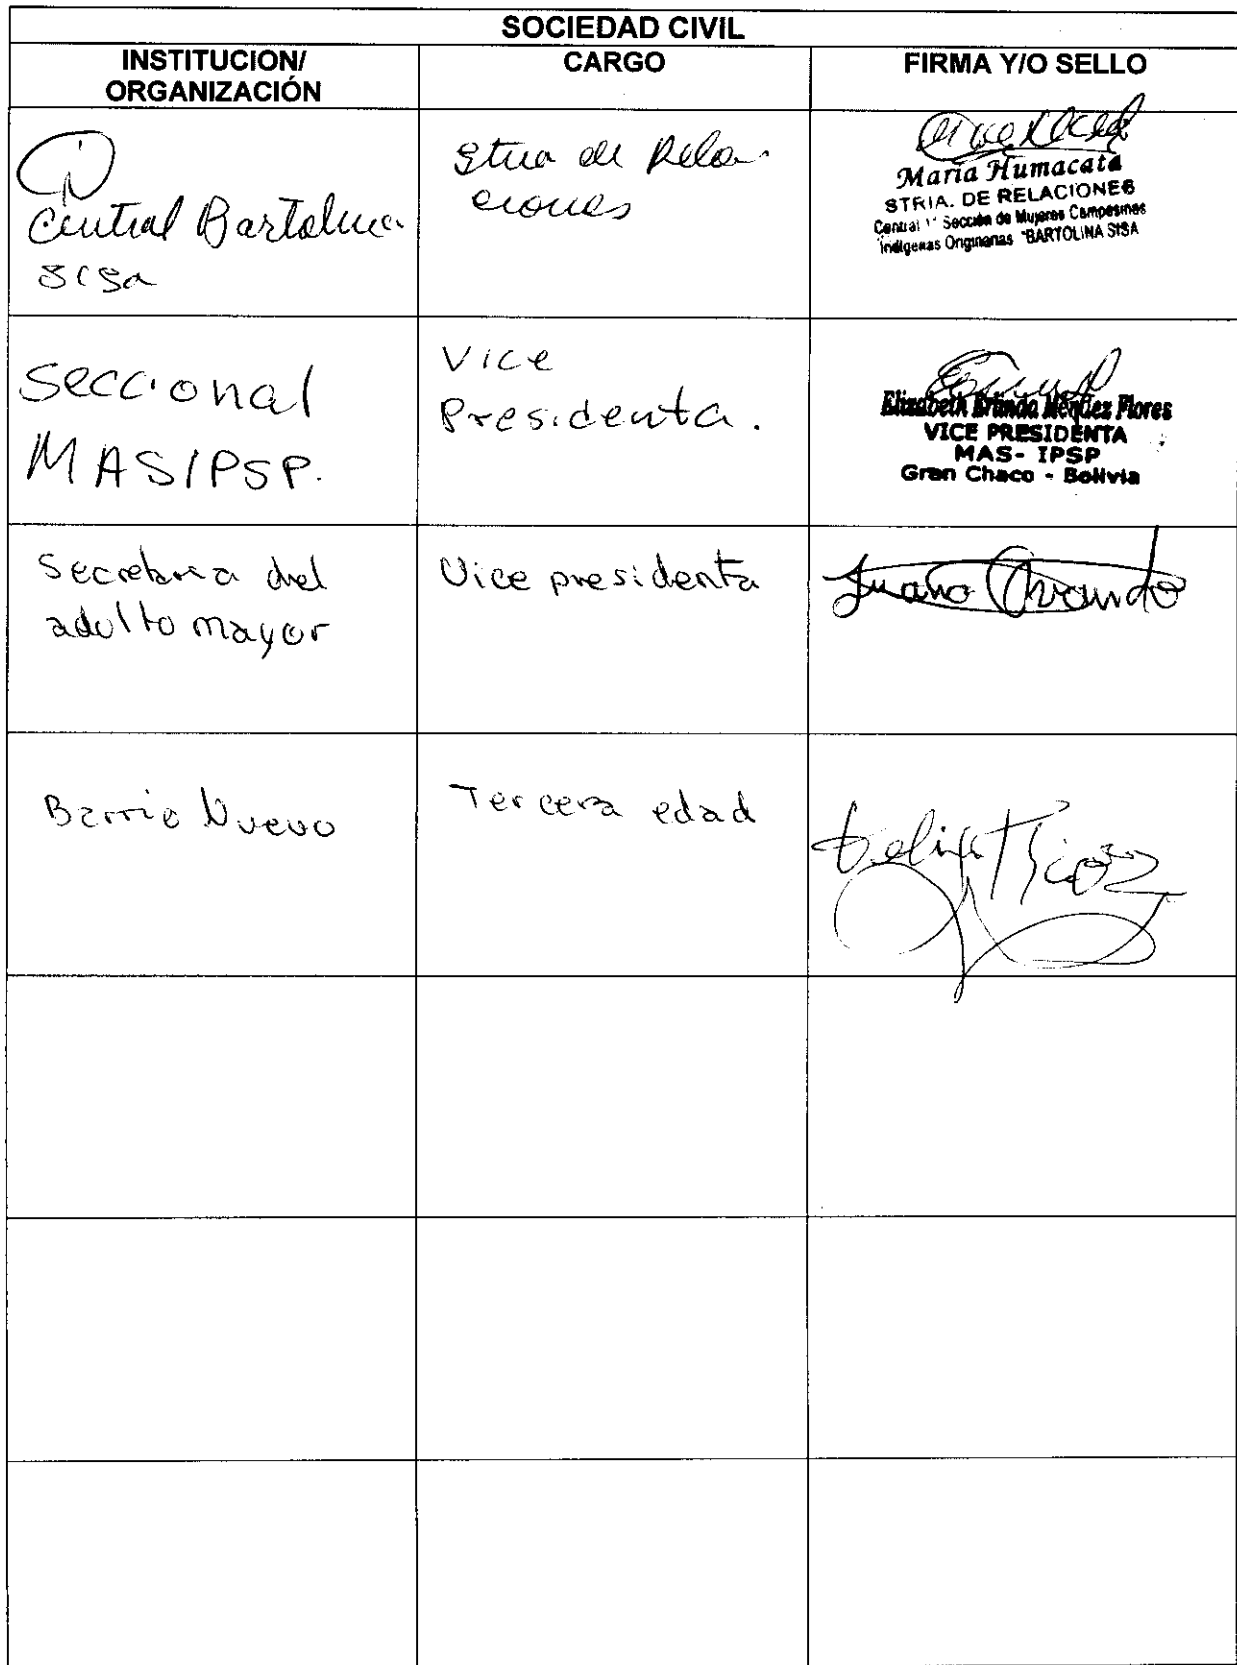 SOCIEDAD CIVIL
INSTITUCION/
ORGANIZACIÓN
CARGO
FIRMA Y/O SELLO
Central Bartolina
Sisa
Stria de Rela
ciones
María Humacata
STRIA. DE RELACIONES
Central 1° Sección de Mujeres Campesinas
Indígenas Originarias "BARTOLINA SISA
Seccional
MASIPSP.
Vice
Presidenta.
Elizabeth Brinda Méndez Flores
VICE PRESIDENTA
MAS- IPSP
Gran Chaco - Bolivia
Secretaria del
adulto mayor
Vice presidenta
Juana Ovando
Barrio Nuevo
Tercera edad